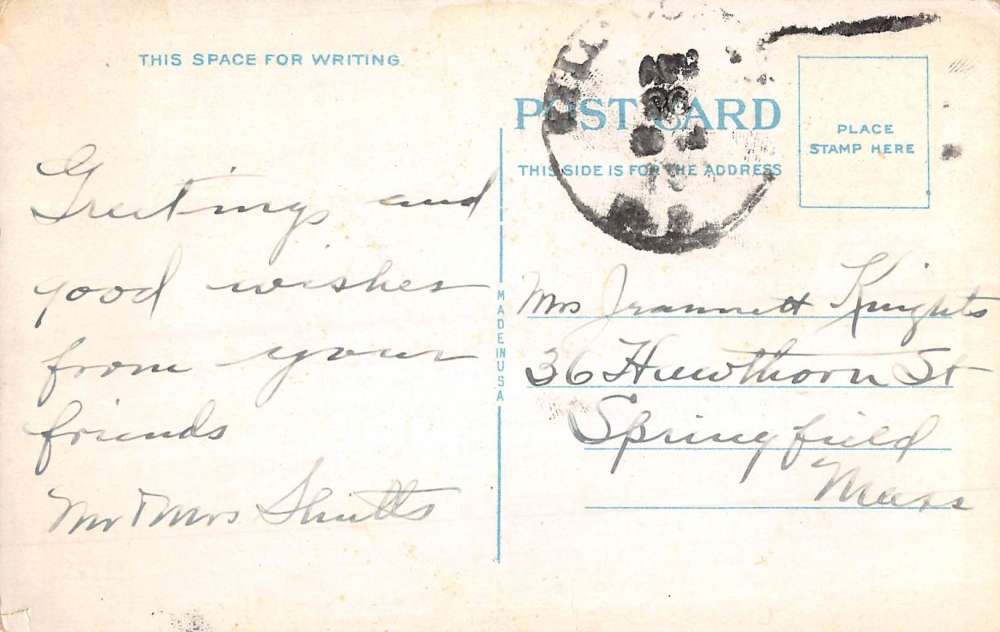 THIS SPACE FOR WRITING
Greetings and
good wishes
from your
friends
Mr & Mrs Shutts
POST CARD
THIS SIDE IS FOR THE ADDRESS
PLACE
STAMP HERE
MADE IN USA
Mrs Jeannett Knights
36 Hawthorn St
Springfield
Mass